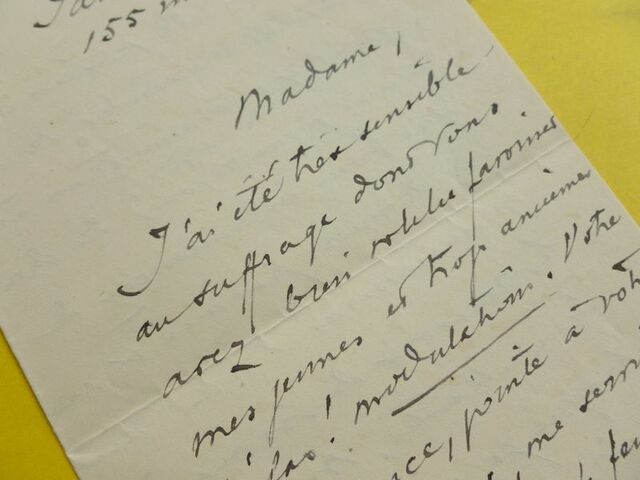 155
Madame,
J'ai été très sensible
au suffrage dont vous
avez bien voulu favoriser
mes jeunes et trop anciennes
! modulations. Votre
, pointe à
me